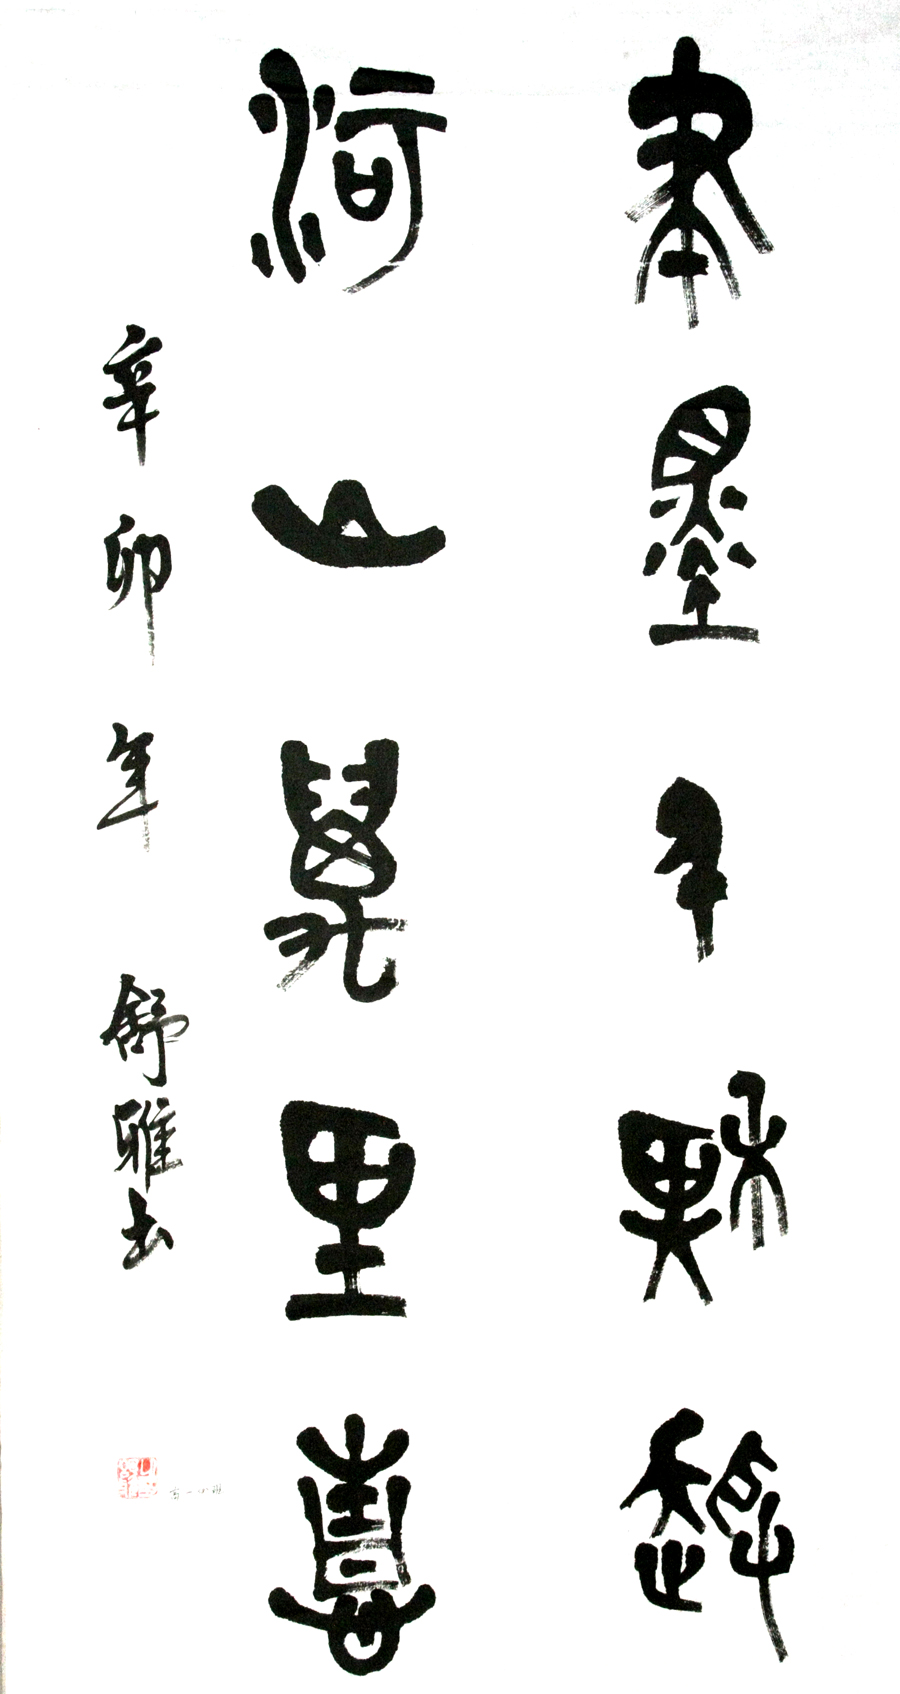 筆墨千秋趣
河山萬里春
辛卯年 舒雅书